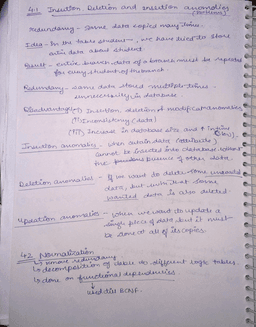 4.1 Insertion Deletion and insertion anomalies
Redundancy - same data copied many times.
Idea - In the table student, we have tried to store
entire data about student
Result - entire branch data of a branch must be repeated
for every student of the branch
Redundancy - same data stored multiple times
unnecessarily in database
Disadvantages (I) Insertion, deletion & modification anomalies
(II) Inconsistency (data)
(III) Increase in database size and
Insertion anomaly - when certain data (attribute)
cannot be inserted into database without
the presence of other data.
Deletion anomalies - If we want to delete some unwanted
data, but with that some
wanted data is also deleted.
Updation anomalies - when we want to update a
single piece of data but it must
be done at all of its copies.
4.2 Normalization
↳ remove redundancy
↳ decomposition of table to different tables
↳ done on functional dependencies
used till BCNF